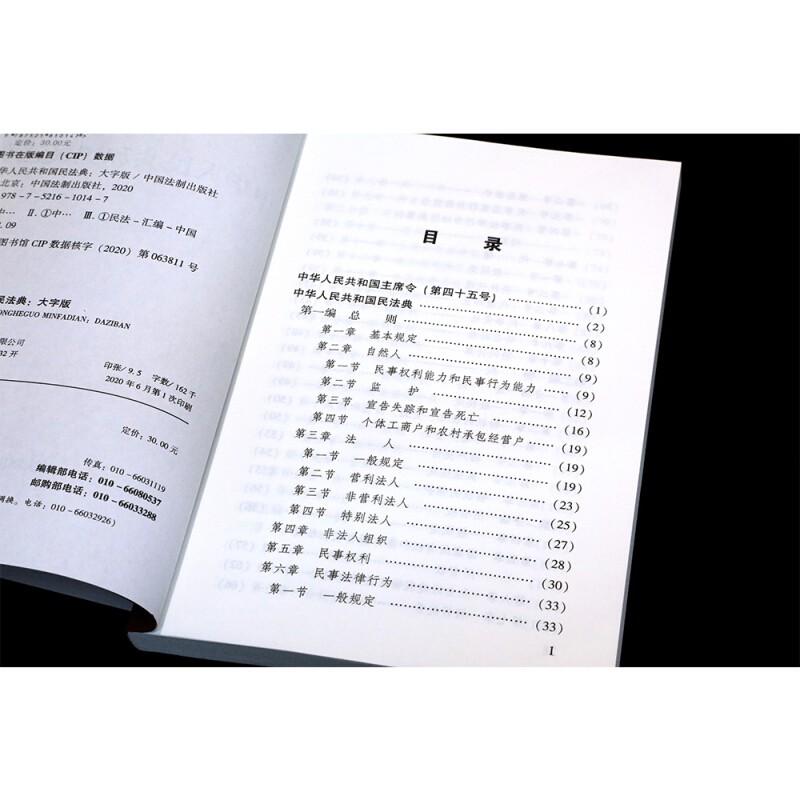 定价：30.00元
图书在版编目（CIP）数据
华人民共和国民法典：大字版／中国法制出版社
北京：中国法制出版社，2020
978-7-5216-1014-7
中… Ⅱ.①中… Ⅲ.①民法-汇编-中国
.09
图书馆CIP数据核字（2020）第063811号
民法典：大字版
ONGHEGUO MINFADIAN: DAZIBAN
限公司
32开
印张/9.5 字数/162千
2020年6月第1次印刷
定价：30.00元
传真：010-66031119
编辑部电话：010-66080537
邮购部电话：010-66033288
调换。电话：010-66032926）
目 录
中华人民共和国主席令（第四十五号）……………（1）
中华人民共和国民法典……………（2）
第一编 总 则……………（8）
第一章 基本规定……………（8）
第二章 自然人……………（9）
第一节 民事权利能力和民事行为能力……………（9）
第二节 监 护……………（12）
第三节 宣告失踪和宣告死亡……………（16）
第四节 个体工商户和农村承包经营户……………（19）
第三章 法 人……………（19）
第一节 一般规定……………（19）
第二节 营利法人……………（23）
第三节 非营利法人……………（25）
第四节 特别法人……………（27）
第四章 非法人组织……………（28）
第五章 民事权利……………（30）
第六章 民事法律行为……………（33）
第一节 一般规定……………（33）
1